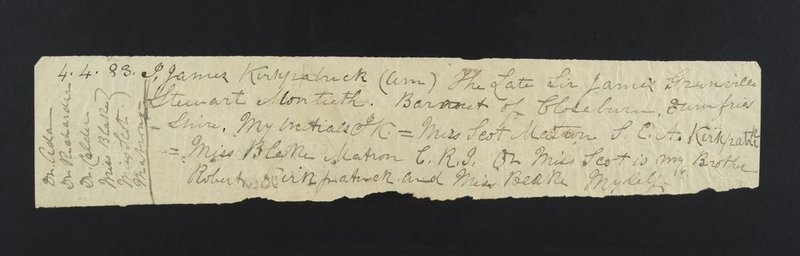 4. 4. 83. I, James Kirkpatrick (am) The Late Sir James Grenville
Stewart Monteith. Baronet of Closeburn, Dumfries
= Shire. My initials J K. = Miss Scot Matron S. C. A. Kirkpat
= Miss Blake Matron C. R. I. Or Miss Scot is my Brother
Robert Kirkpatrick and Miss Blake Myself
Dr Richardson
Dr Calder
Miss Blake
Miss Scot
Matrons